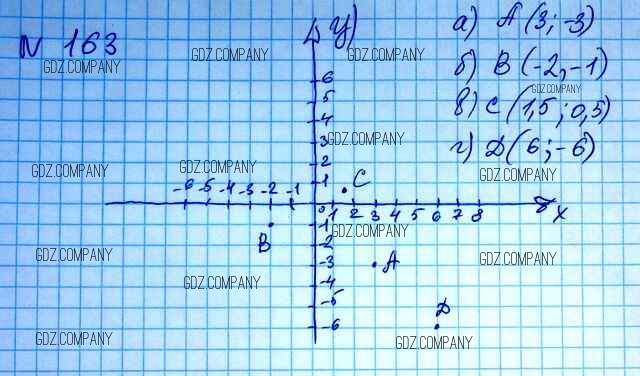 N 163
а) A (3; -3)
б) B (-2; -1)
в) C (1,5; 0,5)
г) D (6; -6)
y
6
5
4
3
2
1
-6 -5 -4 -3 -2 -1
0 1 2 3 4 5 6 7 8
x
-1
-2
-3
-4
-5
-6
C
B
A
D
GDZ.COMPANY
GDZ.COMPANY
GDZ.COMPANY
GDZ.COMPANY
GDZ.COMPANY
GDZ.COMPANY
GDZ.COMPANY
GDZ.COMPANY
GDZ.COMPANY
GDZ.COMPANY
GDZ.COMPANY
GDZ.COMPANY
GDZ.COMPANY
GDZ.COMPANY